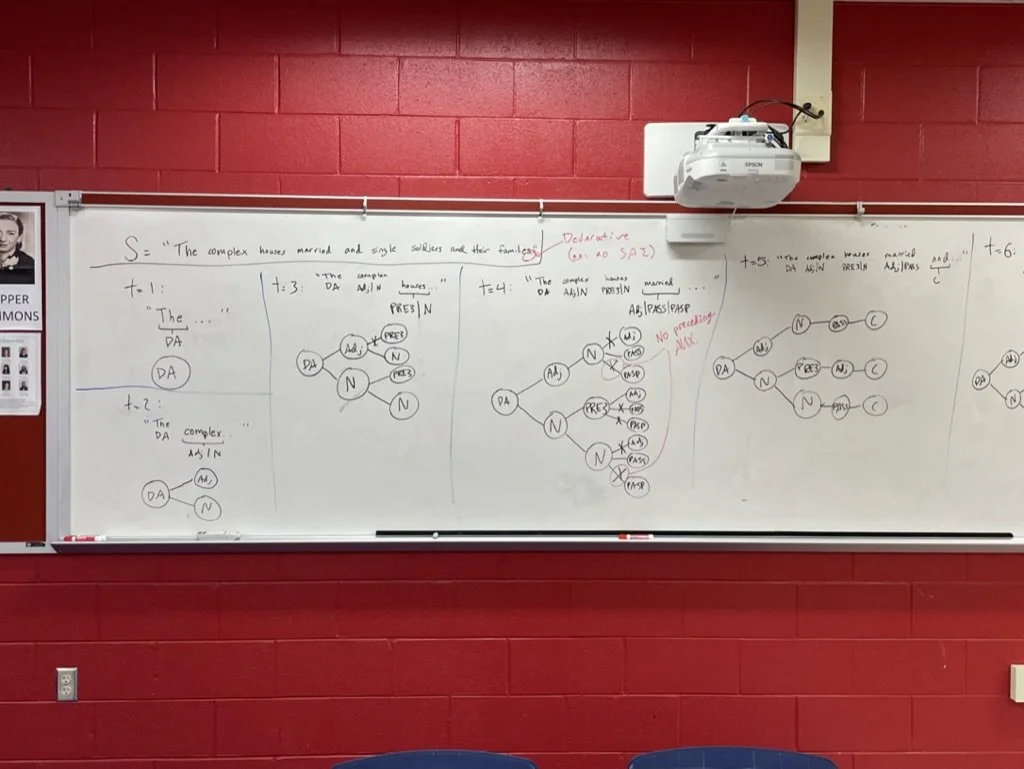 S = "The complex houses married and single soldiers and their families"
Declarative
(ex: no SAI)
t=1:
"The ..."
DA
DA
t=2:
"The complex..."
DA Adj|N
DA
Adj
N
t=3: "The complex houses..."
DA Adj|N
PRE3|N
DA
Adj
N
PRE3
N
PRE3
N
t=4: "The complex houses married ..."
DA Adj|N PRE3|N
Adj|PASS|PASP
No preceding
AUX
DA
Adj
N
N
PRE3
N
Adj
PASS
PASP
Adj
PASS
PASP
Adj
PASS
PASP
t=5: "The complex houses married and..."
DA Adj|N PRE3|N Adj|PASS
C
DA
Adj
N
N
PASS
C
PRE3
Adj
C
N
PASS
C
t=6:
DA
N
EPSON
PPER
MMONS